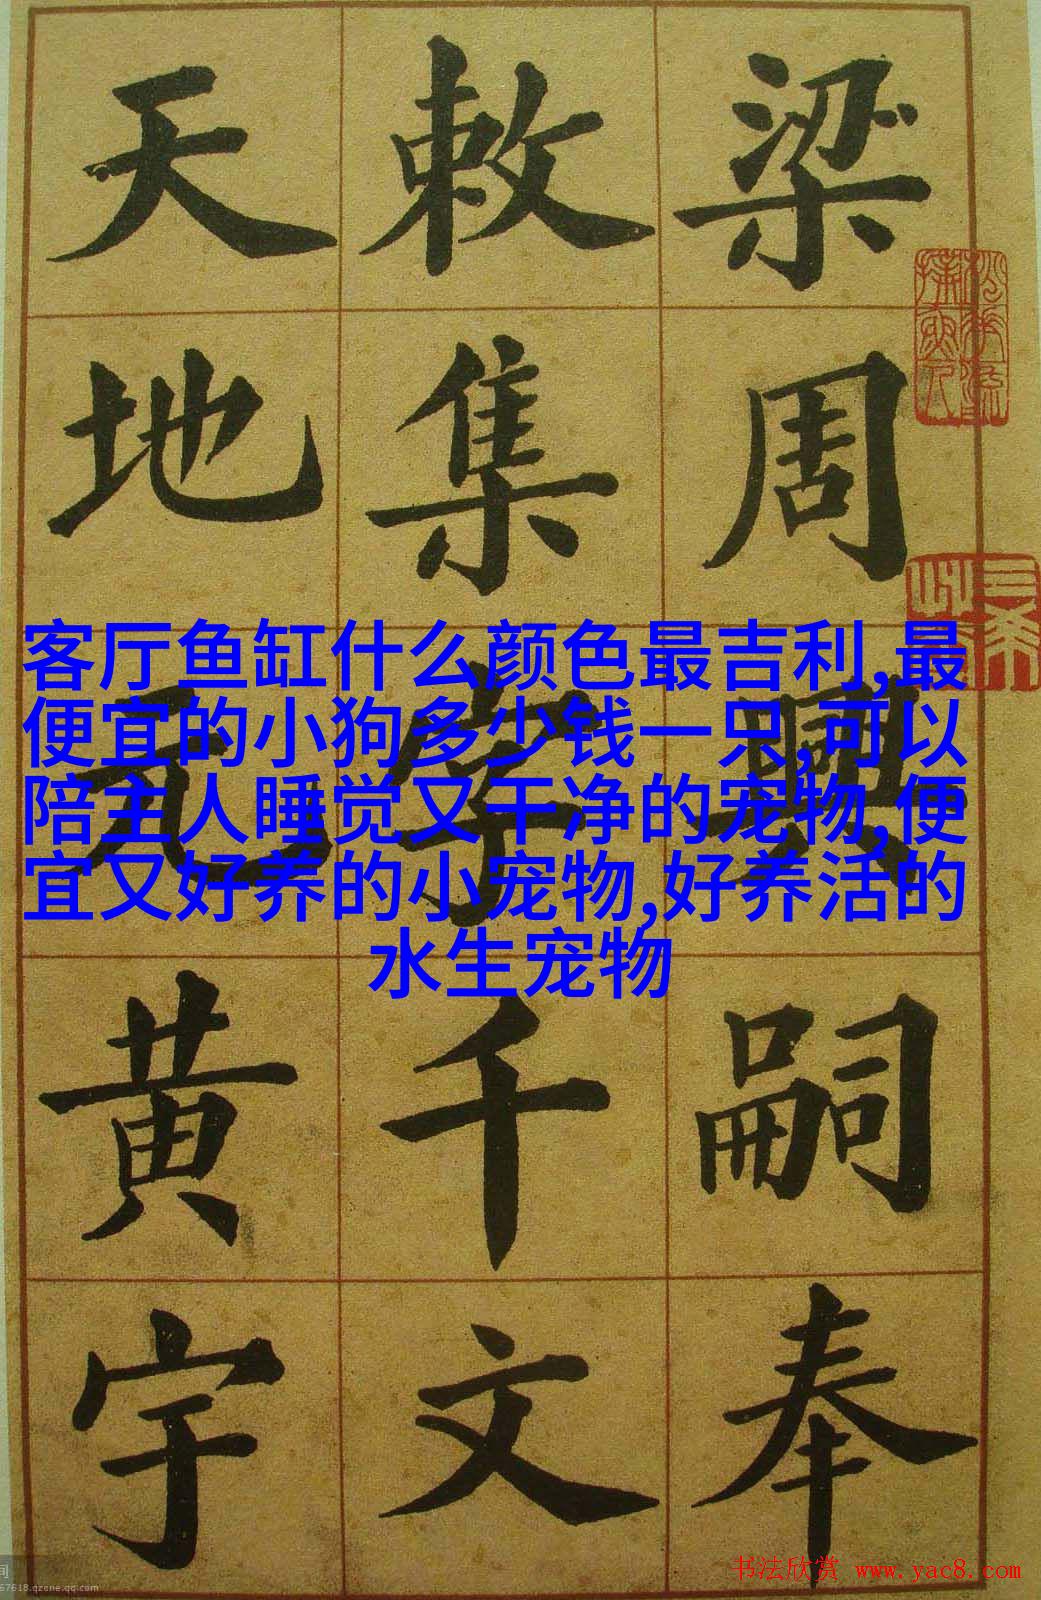 梁周興嗣奉
敕集字千文
天地元黄宇
客厅鱼缸什么颜色最吉利,最
便宜的小狗多少钱一只,可以
陪主人睡觉又干净的宠物,便
宜又好养的小宠物,好养活的
水生宠物
书法欣赏 www.yac8.com
间
67618.qzone.qq.com